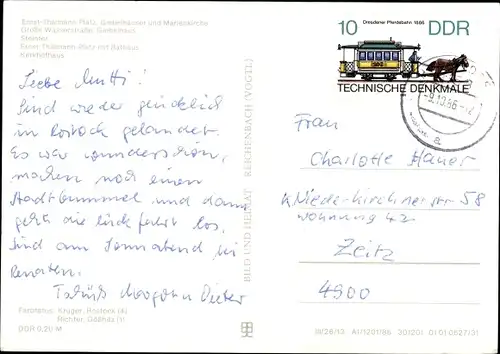 Ernst-Thälmann-Platz, Giebelhäuser und Marienkirche
Große Wasserstraße: Giebelhaus
Steintor
Ernst-Thälmann-Platz mit Rathaus
Kerkhoffhaus
Liebe Mutti!
Sind wieder glücklich
in Rostock gelandet.
Es war wunderschön,
machen noch einen
Stadtbummel und dann
geht die Rückfahrt los.
Sind am Sonnabend bei
Renaten.
Dieter
Fotofotos: Krüger, Rostock (4)
Richter, Gößnitz (1)
DDR 0,20 M
BILD UND HEIMAT REICHENBACH (VOGTL)
III/26/13 A1/1201/86 30/201 01 01 0627/31
Dresdener Pferdebahn 1886
10 DDR
TECHNISCHE DENKMALE
-9.10.86-12
a
Frau
Charlotte Hauer
K. Niederkirchnerstr 58
Wohnung 42
Zeitz
4900